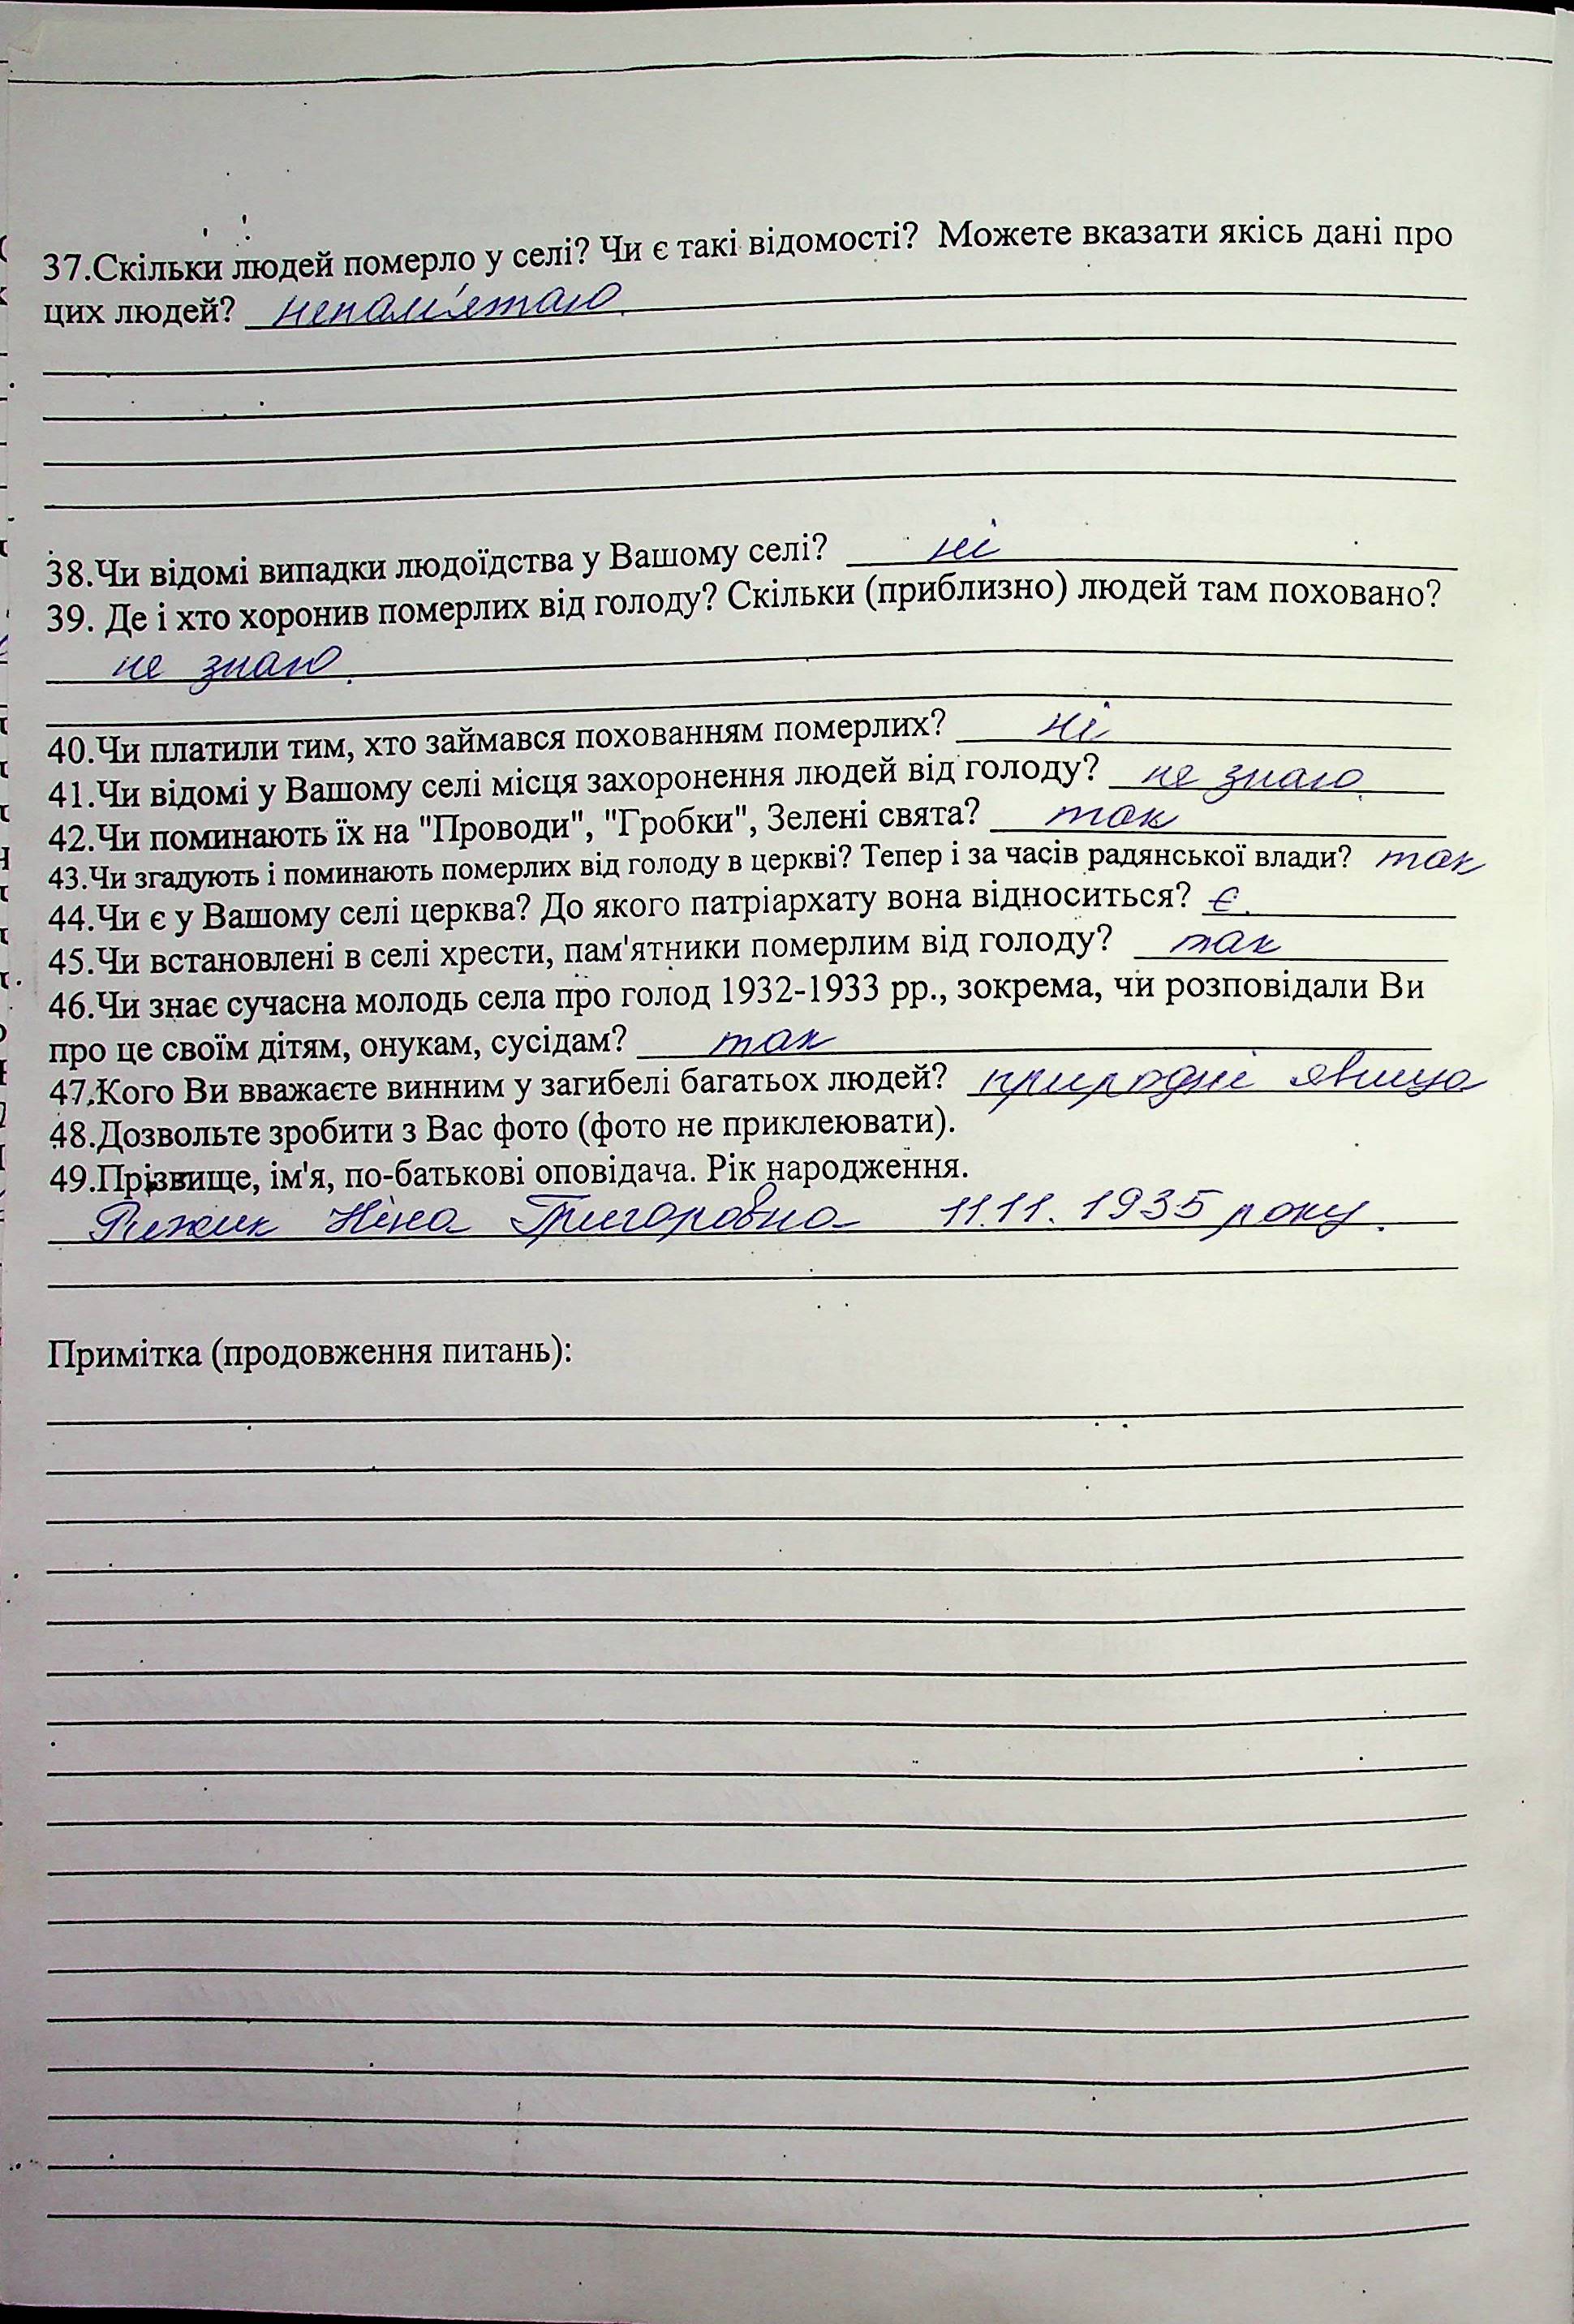 37.Скільки людей померло у селі? Чи є такі відомості? Можете вказати якісь дані про
цих людей? непам'ятаю.
38.Чи відомі випадки людоїдства у Вашому селі? ні
39. Де і хто хоронив померлих від голоду? Скільки (приблизно) людей там поховано?
не знаю.
40.Чи платили тим, хто займався похованням померлих? ні
41.Чи відомі у Вашому селі місця захоронення людей від голоду? не знаю.
42.Чи поминають їх на "Проводи", "Гробки", Зелені свята? так
43.Чи згадують і поминають померлих від голоду в церкві? Тепер і за часів радянської влади? так
44.Чи є у Вашому селі церква? До якого патріархату вона відноситься? є.
45.Чи встановлені в селі хрести, пам'ятники померлим від голоду? так
46.Чи знає сучасна молодь села про голод 1932-1933 рр., зокрема, чи розповідали Ви
про це своїм дітям, онукам, сусідам? так
47.Кого Ви вважаєте винним у загибелі багатьох людей? природні явища
48.Дозвольте зробити з Вас фото (фото не приклеювати).
49.Прізвище, ім'я, по-батькові оповідача. Рік народження.
Рижик Ніна Григоровна 11.11.1935 року.
Примітка (продовження питань):